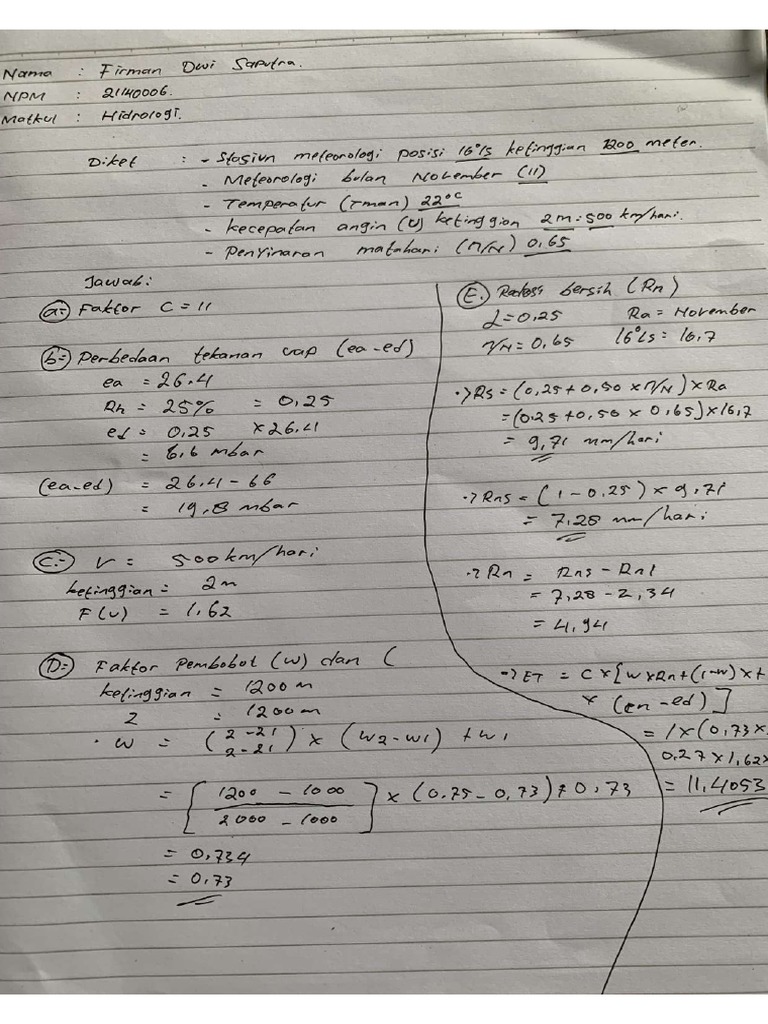 Nama : Firman Dwi Saputra.
NPM : 21140006.
Matkul : Hidrologi.
Diket : - Stasiun meteorologi posisi 16°LS ketinggian 1200 meter.
- Meteorologi bulan November (11)
- Temperatur (Tman) 22°C
- kecepatan angin (U) ketinggian 2m = 500 km/hari.
- Penyinaran matahari (n/N) 0,65
Jawab:
a= Faktor C = 11
b= Perbedaan tekanan uap (ea-ed)
ea = 26.4
Rh = 25% = 0,25
ed = 0,25 x 26.4
= 6,6 mbar
(ea-ed) = 26.4 - 66
= 19,8 mbar
C.= V = 500 km/hari
ketinggian = 2m
F(u) = 1,62
D= Faktor Pembobot (w) dan (
ketinggian = 1200 m
Z = 1200 m
• W = (2-21 / 2-21) x (W2-W1) + W1
= [1200 - 1000 / 2000 - 1000] x (0.75 - 0,73) + 0,73
= 0,734
= 0,73
E. Radiasi bersih (Rn)
α = 0,25 Ra = November
n/N = 0,65 16°LS = 16,7
-> Rs = (0,25 + 0,50 x n/N) x Ra
= (0,25 + 0,50 x 0,65) x 16,7
= 9,71 mm/hari
-> Rns = (1 - 0,25) x 9,71
= 7,28 mm/hari
-> Rn = Rns - Rn1
= 7,28 - 2,34
= 4,94
-> ET = C x [W x Rn + (1-w) x f
x (en-ed)]
= 1 x (0,73 x
0,27 x 1,62 x
= 11,4053